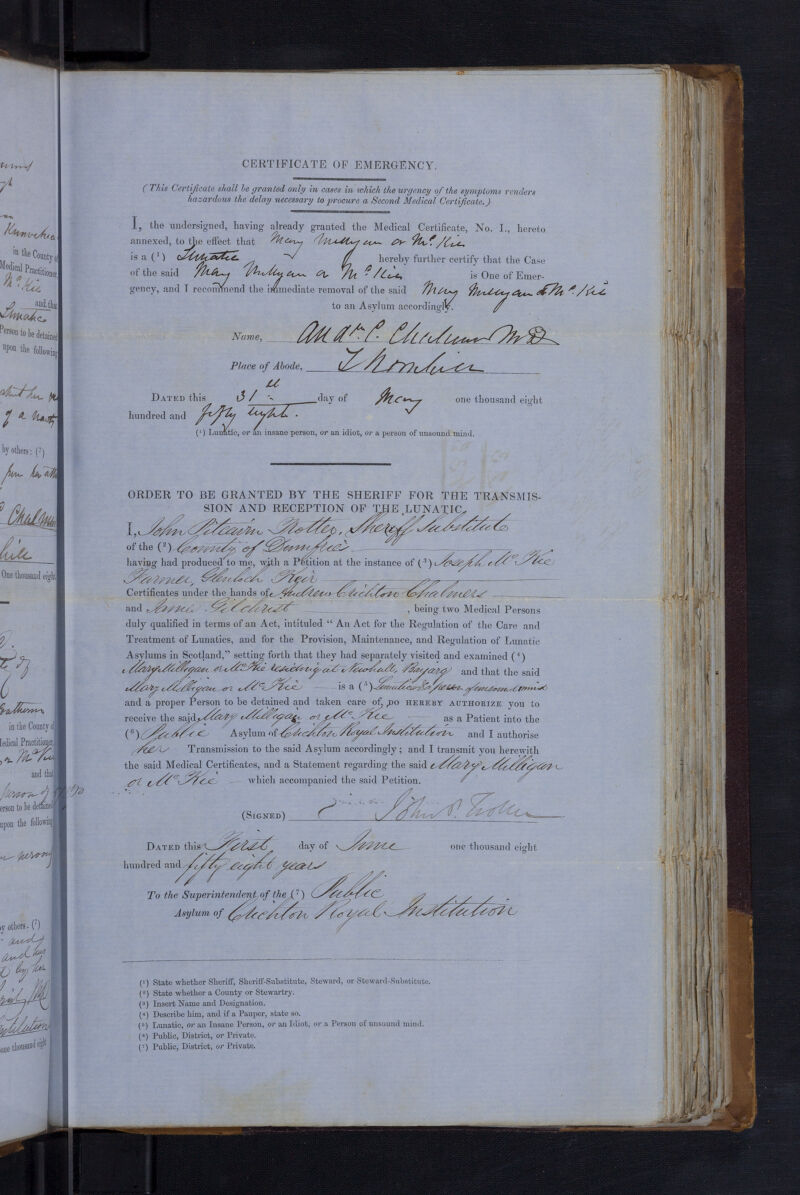 CERTIFICATE OF EMERGENCY.
(This Certificate shall be granted only in cases in which the urgency of the symptoms renders
hazardous the delay necessary to procure a Second Medical Certificate.)
I, the undersigned, having already granted the Medical Certificate, No. I., hereto
annexed, to the effect that Mary Milligan or McKie
is a (1) Lunatic hereby further certify that the Case
of the said Mary Milligan or McKie is One of Emer-
gency, and I recommend the immediate removal of the said Mary Milligan or McKie
to an Asylum accordingly.
Name, Andw. C. Chalmers MD
Place of Abode, Thornhill
DATED this 31st day of May one thousand eight
hundred and fifty eight.
(1) Lunatic, or an insane person, or an idiot, or a person of unsound mind.
ORDER TO BE GRANTED BY THE SHERIFF FOR THE TRANSMIS-
SION AND RECEPTION OF THE LUNATIC.
I, John Pitcairn Trotter, Sheriff Substitute
of the (2) County of Dumfries
having had produced to me, with a Petition at the instance of (3) Joseph McKie
Farmer, Keir
Certificates under the hands of Andrew Crichton Chalmers
and James Gilchrist, being two Medical Persons
duly qualified in terms of an Act, intituled "An Act for the Regulation of the Care and
Treatment of Lunatics, and for the Provision, Maintenance, and Regulation of Lunatic
Asylums in Scotland," setting forth that they had separately visited and examined (4)
Mary Milligan or McKie residing at Newhall, and that the said
Mary Milligan or McKie is a (5) Lunatic or a person of unsound mind
and a proper Person to be detained and taken care of, DO HEREBY AUTHORIZE you to
receive the said Mary Milligan or McKie as a Patient into the
(6) Public Asylum of Crichton Royal Institution and I authorise
her Transmission to the said Asylum accordingly; and I transmit you herewith
the said Medical Certificates, and a Statement regarding the said Mary Milligan
or McKie which accompanied the said Petition.
(SIGNED) John P. Trotter
DATED this First day of June one thousand eight
hundred and fifty eight years
To the Superintendent of the (7) Public
Asylum of Crichton Royal Institution
(1) State whether Sheriff, Sheriff-Substitute, Steward, or Steward-Substitute.
(2) State whether a County or Stewartry.
(3) Insert Name and Designation.
(4) Describe him, and if a Pauper, state so.
(5) Lunatic, or an Insane Person, or an Idiot, or a Person of unsound mind.
(6) Public, District, or Private.
(7) Public, District, or Private.